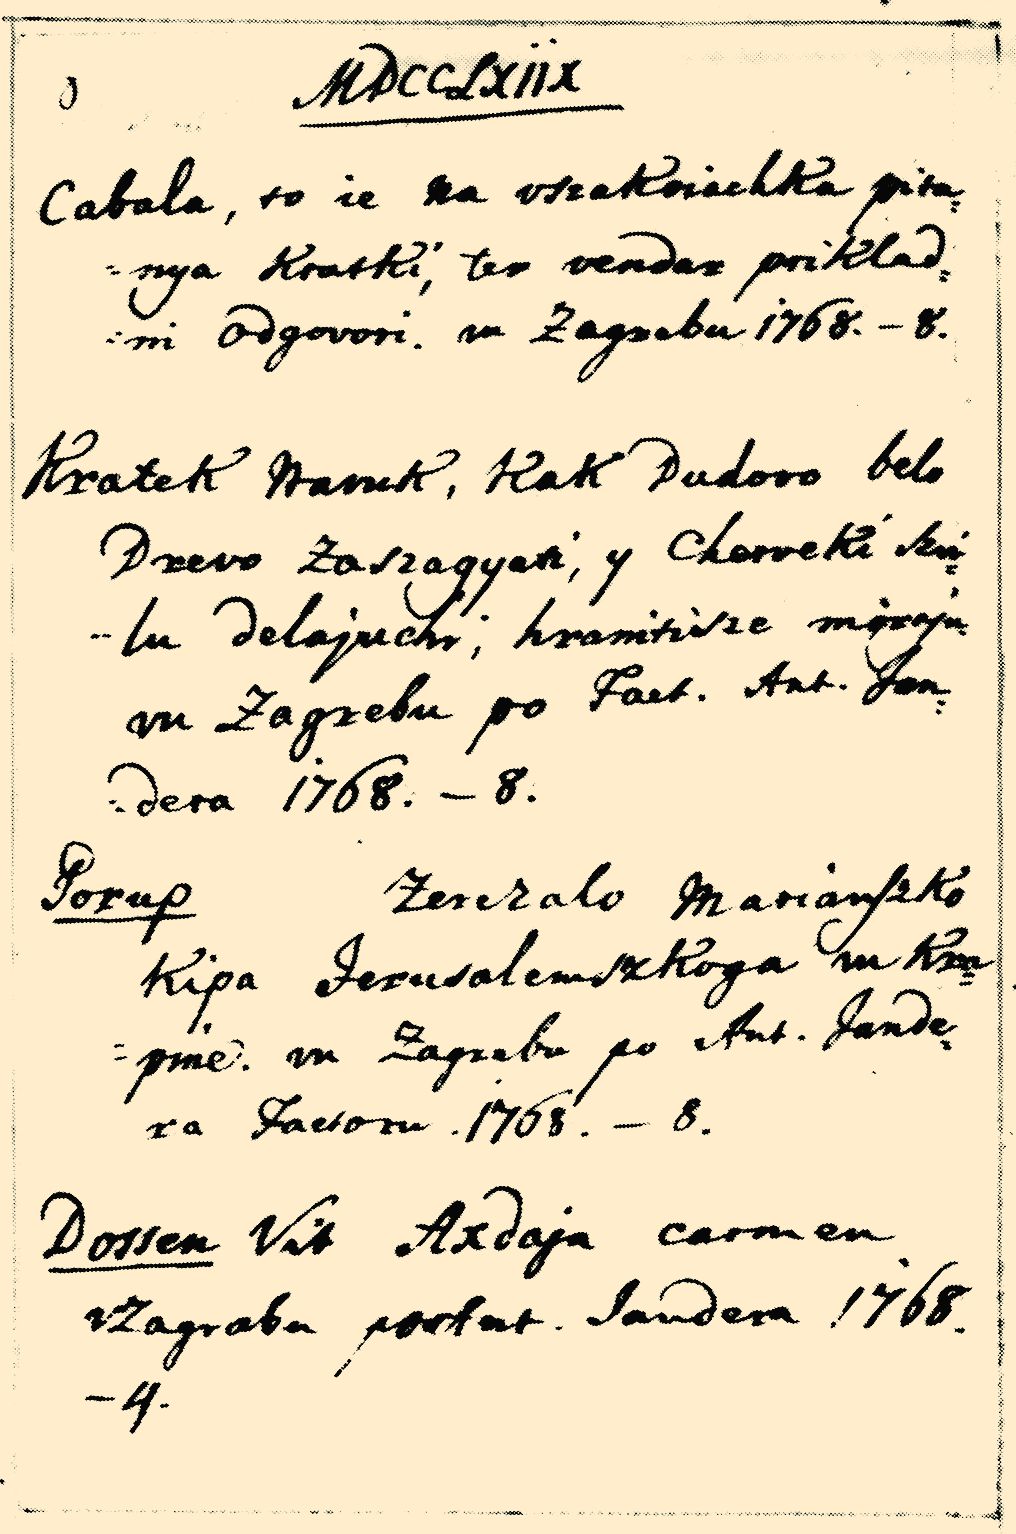 MDCCLXIIX
Cabala, to ie na vszakoiachka pita=
=nya kratki, ter vendar priklad=
=ni odgovori. vu Zagrebu 1768. – 8.
Kratek Navuk, kak Dudovo belo
Drevo zaszagyati, y Cherveki szvi=
=lu delajuchi, hranitisze moraju
vu Zagrebu po Fact. Ant. Jan=
=dera 1768. – 8.
Porup Zerczalo Marianszko
kipa Jerusalemszkoga vu Kra=
=pine. vu Zagrebu po Ant. Jande=
ra Factoru. 1768. – 8.
Dossen Vit Axdaja carmen
vZagrabu post ut. Jandera 1768.
– 4.